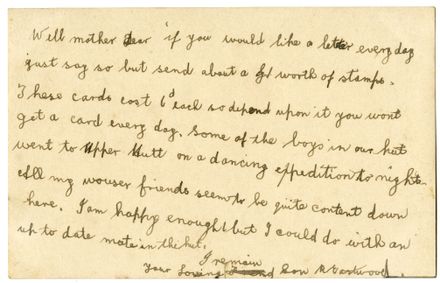 Well mother dear if you would like a letter every day
just say so but send about a £1 worth of stamps.
These cards cost 6d each so depend upon it you wont
get a card every day. Some of the boys in our hut
went to Upper Hutt on a dancing expedition to night.
All my wouser friends seem to be quite content down
here. I am happy enought but I could do with an
up to date mate in the hut.
I remain
Your Loving Son R Eastwood.